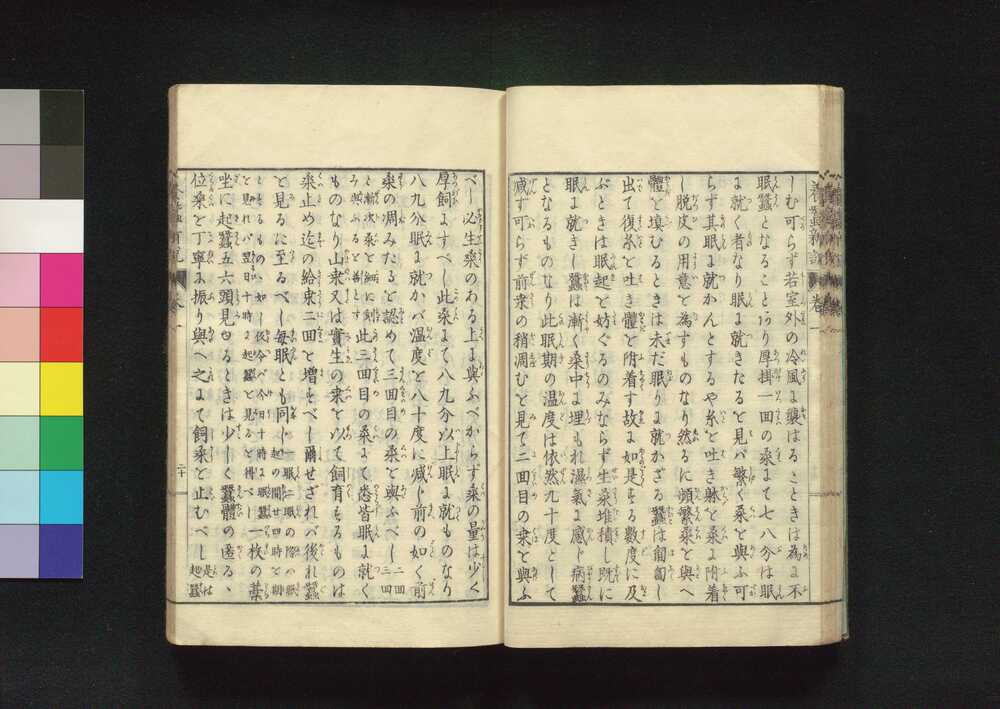 しむ可らず若室外の冷風に襲はるゝときは為に不
眠蠶となることあり厚掛一回の桑にて七八分は眠
に就く者なり眠に就きたると見バ繁く桑を與ふ可
らず其眠に就かんとするや糸を吐き躰を桑に附着
し脱皮の用意を為すものなり然るに頻繁桑を與へ
體を塡むるときは未だ眠りに就かざる蠶は匍匐し
出て復糸を吐き體を附着す故に如是する數度に及
ぶときは眠起を妨ぐるのみならず生桑堆積し既に
眠に就きし蠶は漸く桑中に埋もれ濕氣に感じ病蠶
となるものなり此眠期の温度は依然九十度として
減す可らず前桑の稍凋むを見て二回目の桑を與ふ
べし必生桑のある上に與ふべからず桑の量は少く
厚飼にすべし此桑にて八九分以上眠に就ものなり
八九分眠に就かバ温度を八十度に減じ前の如く前
桑の凋みたるを認めて三回目の桑を與ふべし二回三回
と漸次桑を細に刻み與ふるを善とす此三回目の桑にて悉皆眠に就く
ものなり山桑又は實生の桑を以て飼育するものは
桑止め迄の給桑二回を増すべし爾せざれバ後れ蠶
を見るに至るべし毎眠とも同じ一眠二眠の際ハ眠起の間廿四時を期
とするものゝ如し夜今バ今日十時に眠蠶を見れバ翌日十時に起蠶を見ると得べし一枚の蓆
坐に起蠶五六頭見ゆるときは少しく蠶體の匿るゝ
位桑を丁寧に振り與へ之にて飼桑を止むべし是は起蠶
卷一
二十
卷一